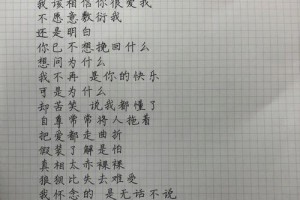 我该相信你很爱我
不愿意敷衍我
还是明白
你已不想挽回什么
想问为什么
我不再 是你的快乐
可是为什么
却苦笑 说我都懂了
自尊常常将人拖着
把爱都走曲折
假装了解是怕
真相太赤裸裸
狼狈比失去难受
我怀念的 是无话不说